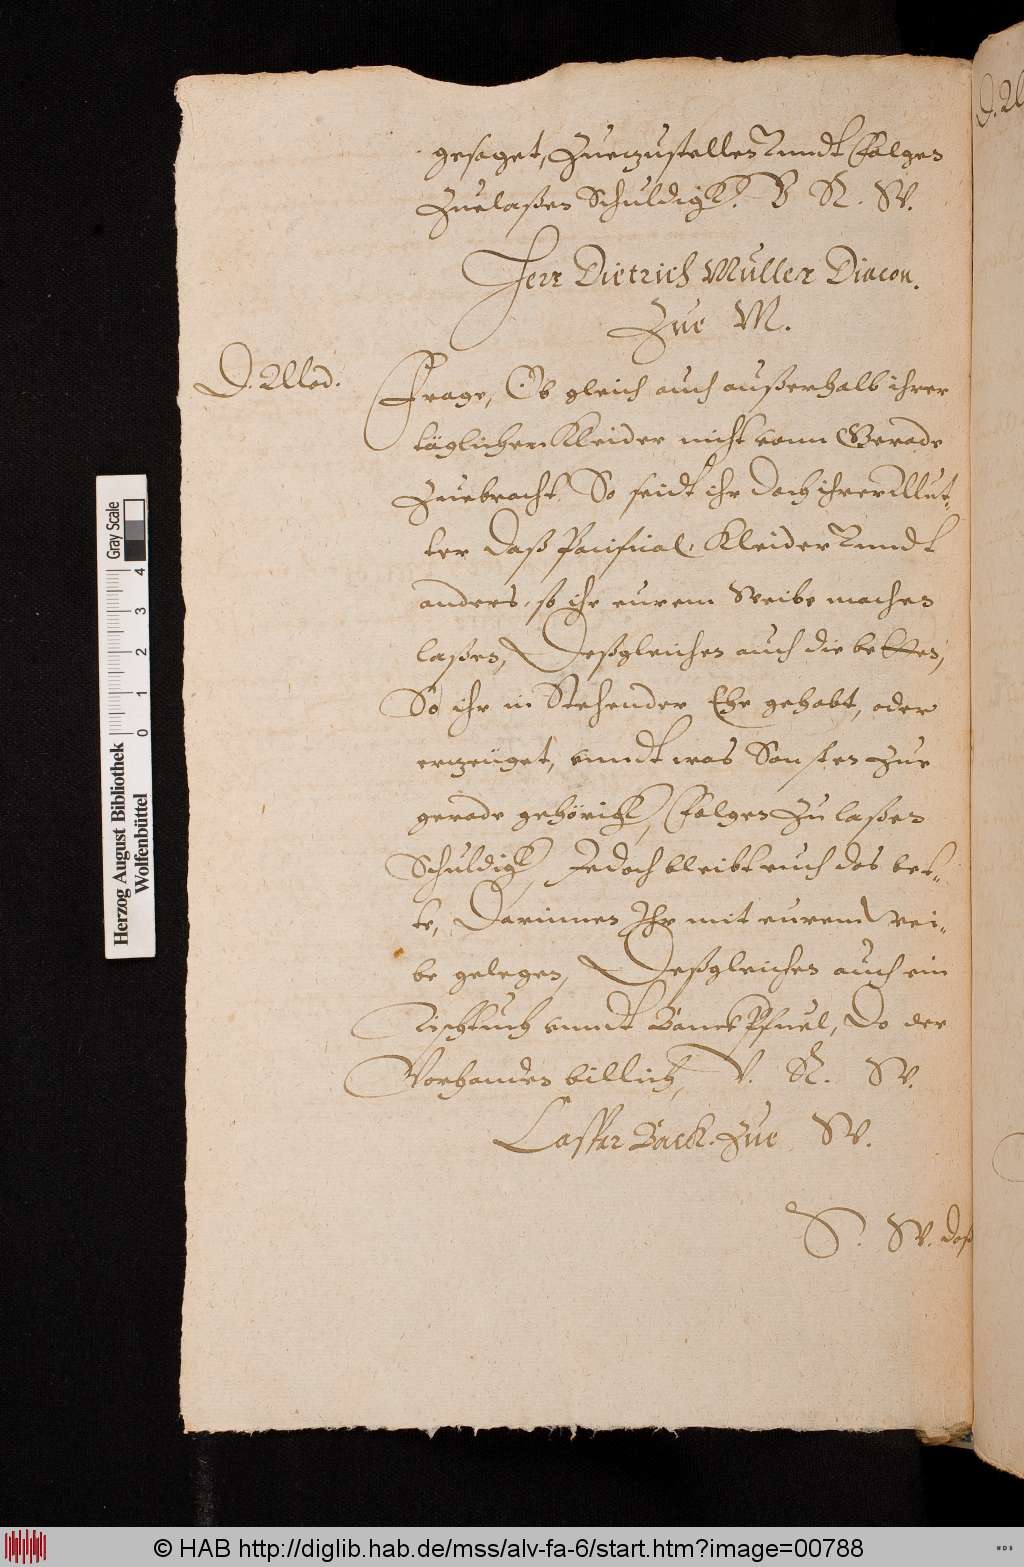 gesaget, Zuezustellen vnndt Folgen
Zuelaßen Schuldigk. V R. W.
Herr Dietrich Muller Diacon.
Zue M.
D. Mod.
Frage, Ob gleich auch außerhalb ihrer
täglichen Kleider nicht vom Gerade
Zuebracht, So seidt ihr doch ihrer Mut-
ter daß Kleider vnndt
anders, so ihr eurem Weibe machen
laßen, Deßgleichen auch die betten,
So ihr in Stehender Ehe gehabt, oder
erzeuget, vnndt was Sonsten Zur
gerade gehörigk, Folgen Zu laßen
Schuldigk, Jedoch bleibt euch das bet-
te, Darinnen Ihr mit eurem Wei-
be gelegen, Deßgleichen auch ein
Tischtuch vnndt Banck Pfuel, Do der
Vorhanden billich, V. R. W.
Caspar Back. Zue W.
S. W. daß
Herzog August Bibliothek
Wolfenbüttel
Gray Scale
0 1 2 3 4
© HAB http://diglib.hab.de/mss/alv-fa-6/start.htm?image=00788